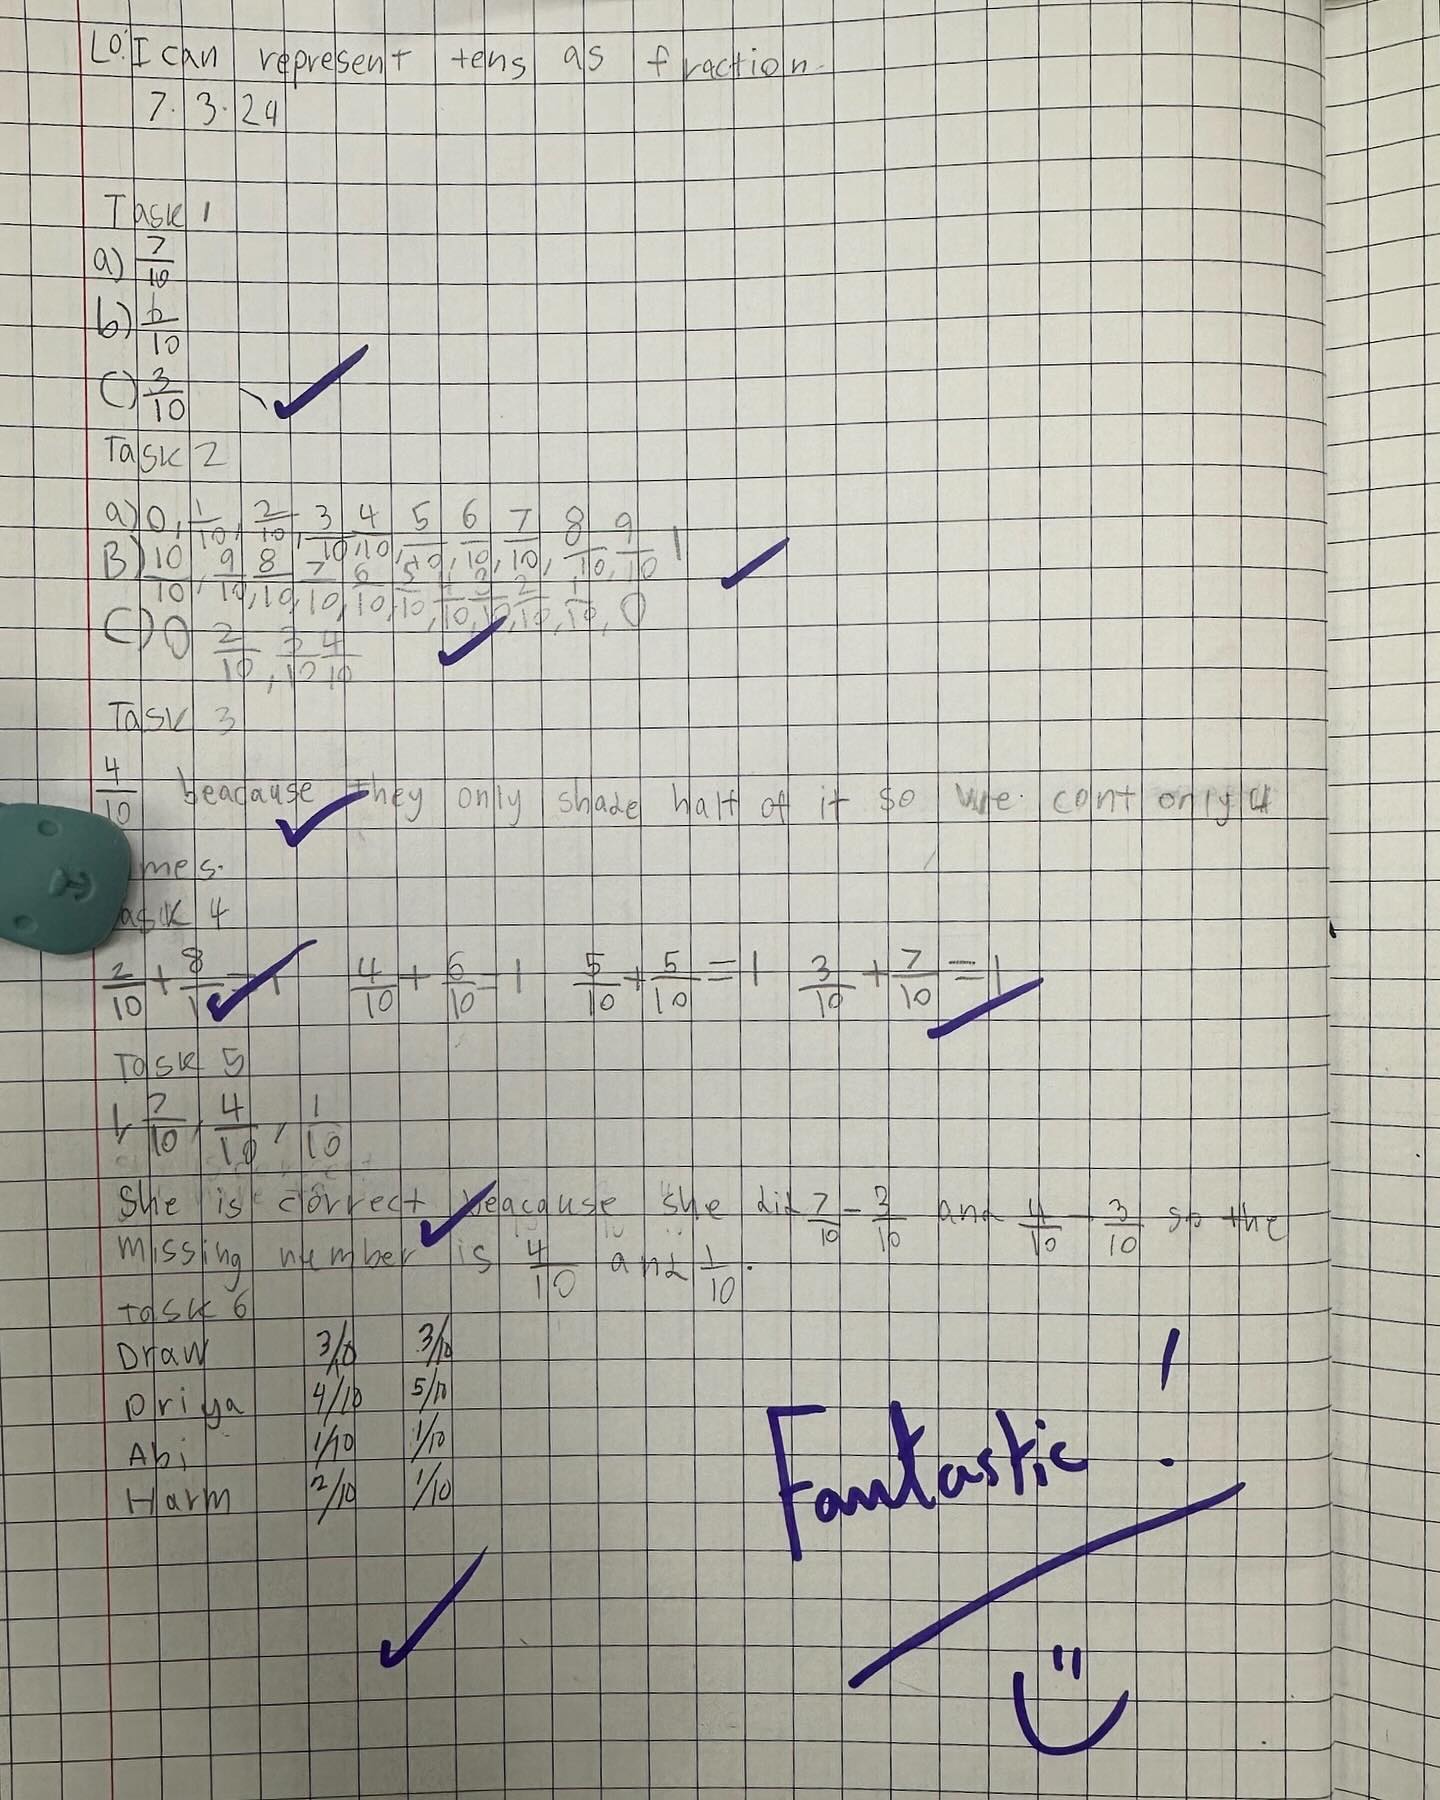 LO: I can represent tens as fraction.
7.3.24
Task 1
a) 7/10
b) 6/10
C) 3/10
Task 2
a) 0, 1/10, 2/10, 3/10, 4/10, 5/10, 6/10, 7/10, 8/10, 9/10 1
B) 10/10, 9/10, 8/10, 7/10, 6/10, 5/10, 4/10, 3/10, 2/10, 1/10, 0
C) 0 2/10, 3/10 4/10
Task 3
4/10 beacause they only shade half of it so we cont only 4
mes.
ask 4
2/10 + 8/1 = 1 4/10 + 6/10 = 1 5/10 + 5/10 = 1 3/10 + 7/10 = 1
Task 5
1, 7/10, 4/10, 1/10
She is correct beacause she did 7/10 - 3/10 and 4/10 - 3/10 so the
missing number is 4/10 and 1/10.
task 6
Draw 3/10 3/10
Priya 4/10 5/10
Abi 1/10 1/10
Harm 2/10 1/10
Fantastic!